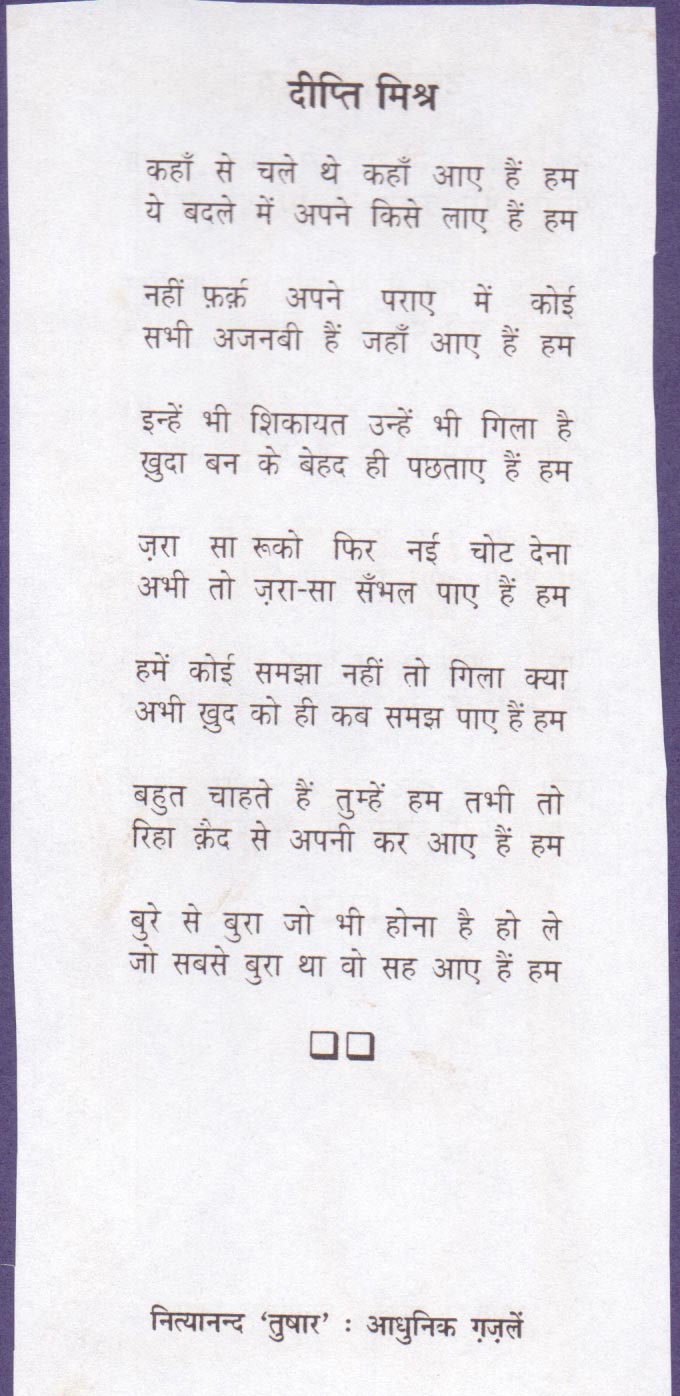 दीप्ति मिश्र
कहाँ से चले थे कहाँ आए हैं हम
ये बदले में अपने किसे लाए हैं हम
नहीं फ़र्क़ अपने पराए में कोई
सभी अजनबी हैं जहाँ आए हैं हम
इन्हें भी शिकायत उन्हें भी गिला है
ख़ुदा बन के बेहद ही पछताए हैं हम
ज़रा सा रूको फिर नई चोट देना
अभी तो ज़रा-सा सँभल पाए हैं हम
हमें कोई समझा नहीं तो गिला क्या
अभी ख़ुद को ही कब समझ पाए हैं हम
बहुत चाहते हैं तुम्हें हम तभी तो
रिहा क़ैद से अपनी कर आए हैं हम
बुरे से बुरा जो भी होना है हो ले
जो सबसे बुरा था वो सह आए हैं हम
नित्यानन्द ‘तुषार’ : आधुनिक ग़ज़लें